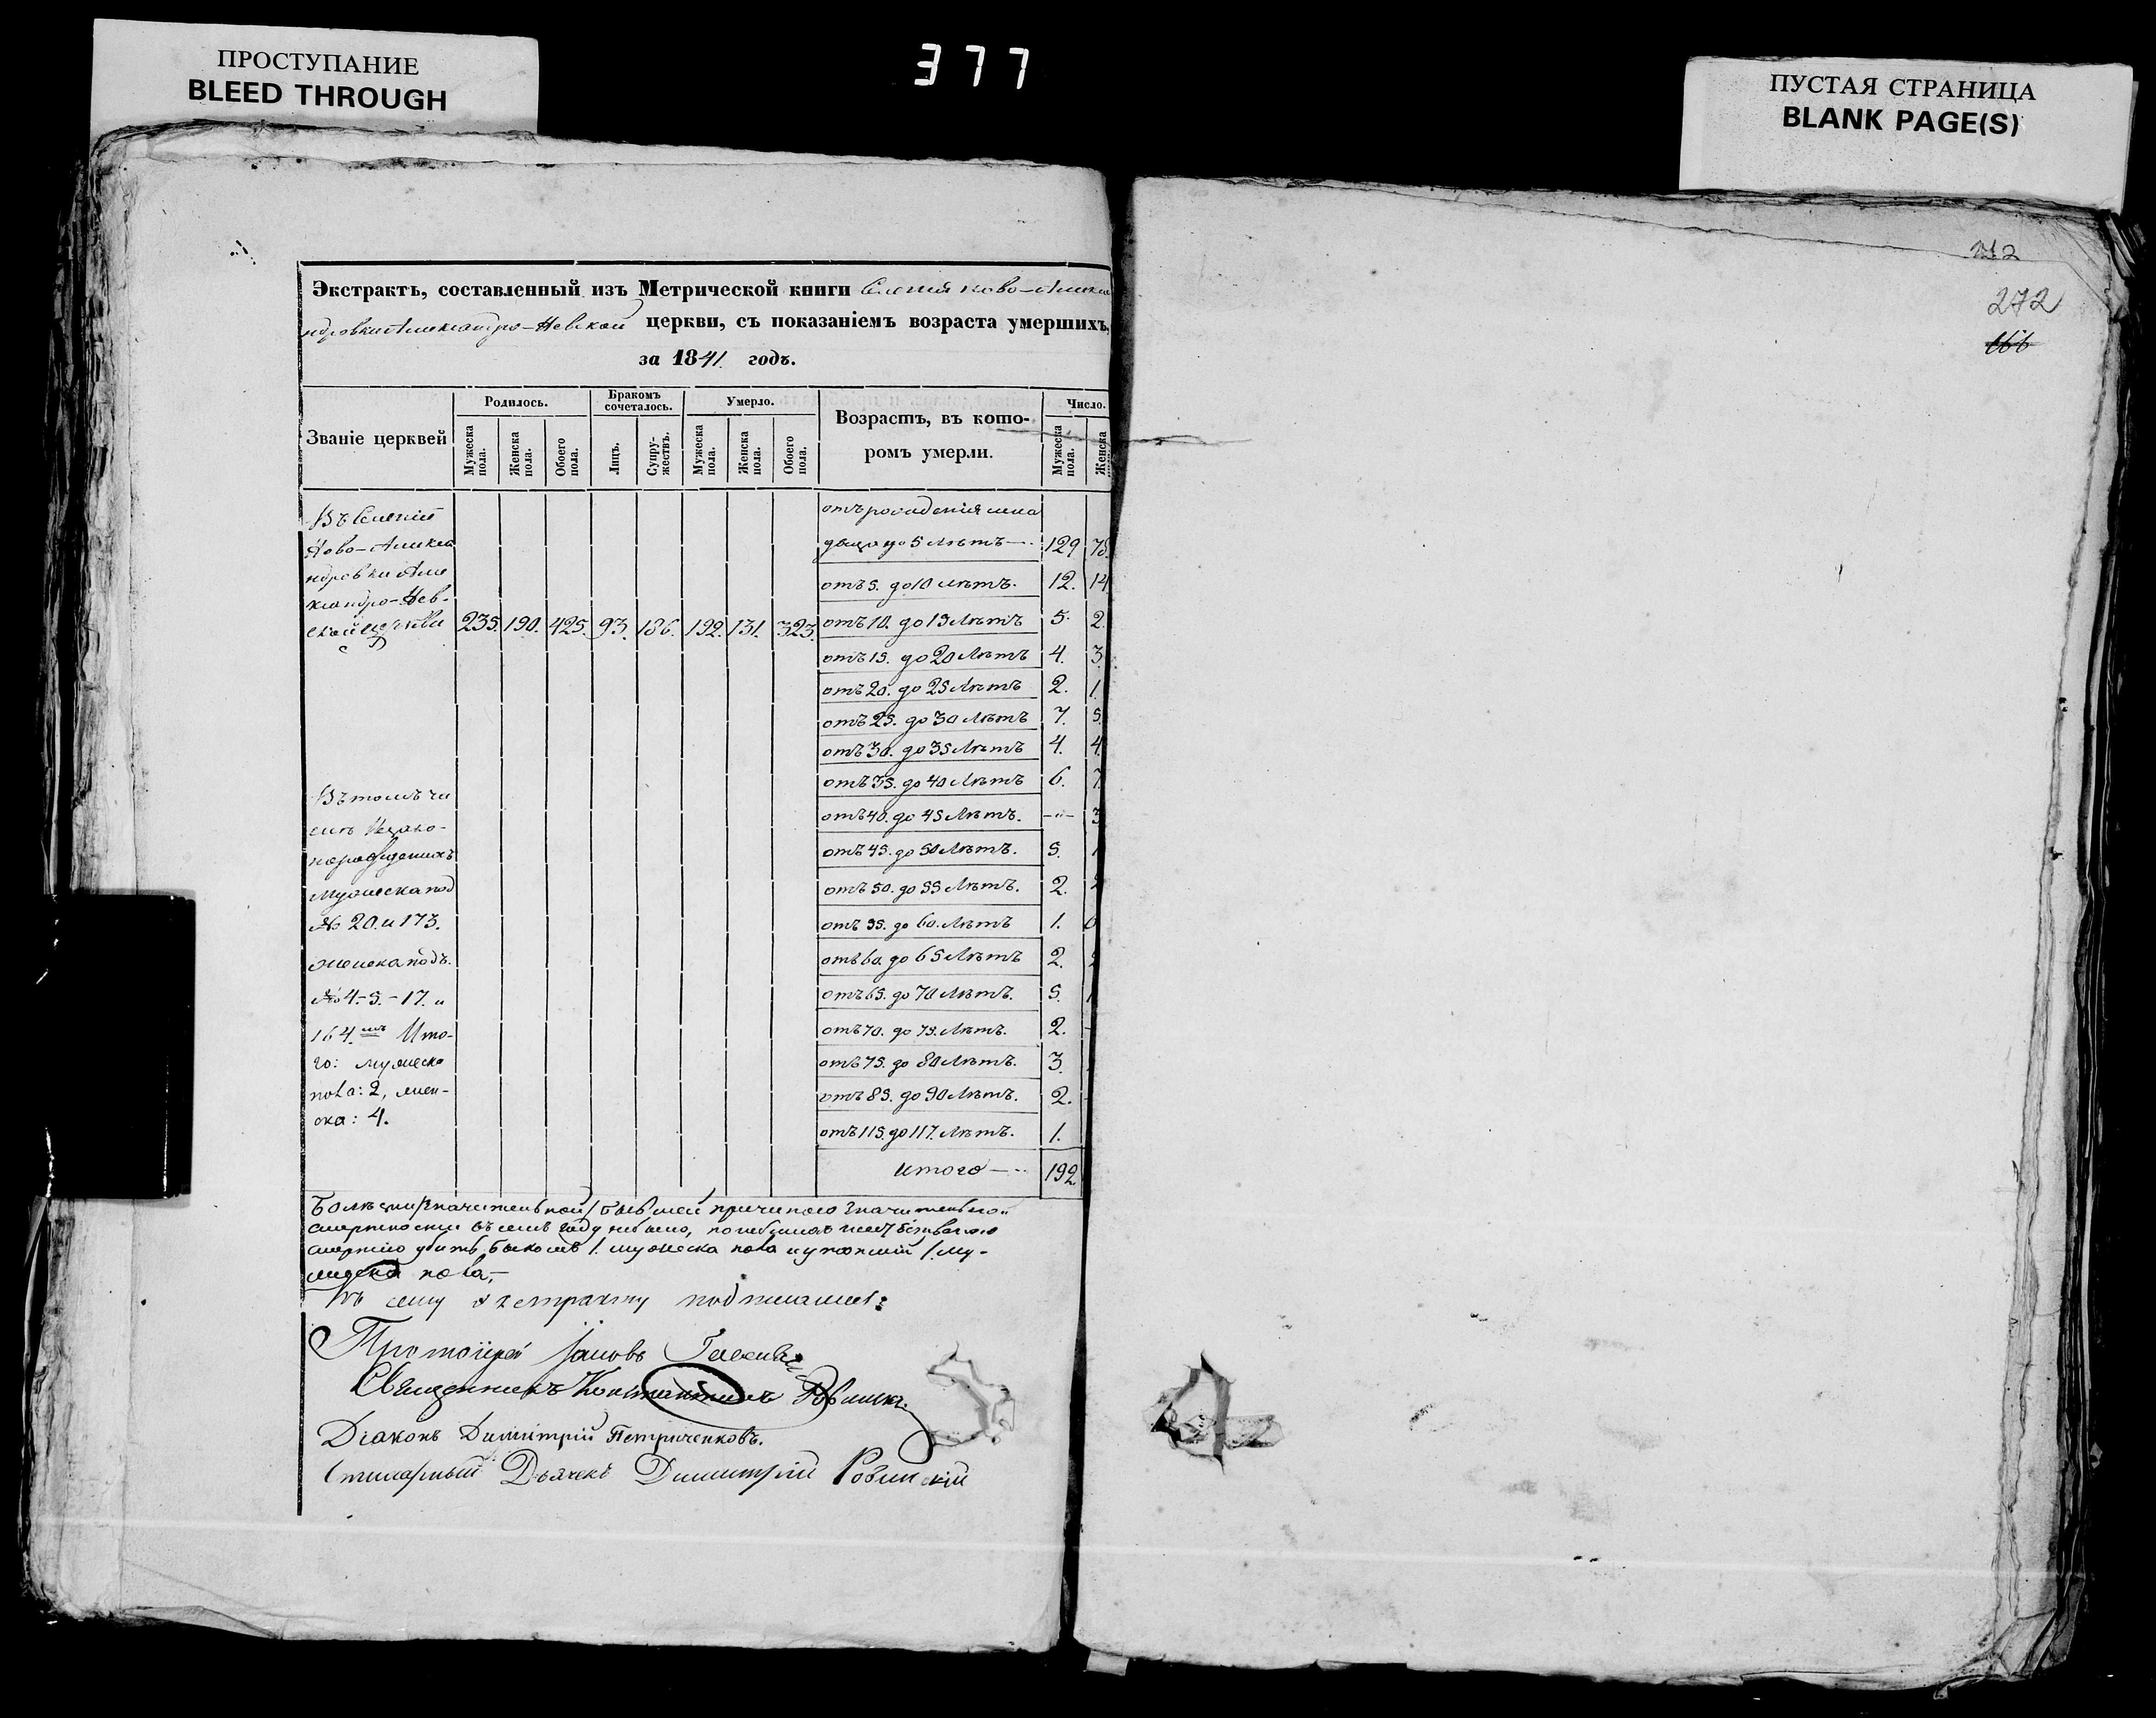 ПРОСТУПАНИЕ
BLEED THROUGH
377
ПУСТАЯ СТРАНИЦА
BLANK PAGE(S)
272
Экстрактъ, составленный изъ Метрической книги Селенія Ново-Алекса
ндровки Александро-Невской церкви, съ показаніемъ возраста умершихъ,
за 1841. годъ.
Званіе церквей
Родилось.
Бракомъ сочеталось.
Умерло.
Возрастъ, въ кото-
ромъ умерли.
Число.
Мужеска пола.
Женска пола.
Обоего пола.
Лицъ.
Супру-жествъ.
Мужеска пола.
Женска пола.
Обоего пола.
Мужеска пола.
Женска
Въ Селеніи
Ново-Алекса
ндровки Але
ксандро-Нев-
ской церкви 235. 190. 425. 93. 186. 192. 131. 323.
отъ рожденія мла
денца до 5 лѣтъ 129 78.
отъ 5. до 10 лѣтъ. 12. 14
отъ 10. до 15 лѣтъ 5. 2.
отъ 15. до 20 лѣтъ 4. 3.
отъ 20. до 25 лѣтъ 2. 1.
отъ 25. до 30 лѣтъ 7. 5.
отъ 30. до 35 лѣтъ 4. 4.
отъ 35. до 40 лѣтъ 6. 7.
отъ 40. до 45 лѣтъ. -"- 3
отъ 45. до 50 лѣтъ. 5. 1
отъ 50. до 55 лѣтъ. 2. 2
отъ 55. до 60. лѣтъ 1. 6
отъ 60. до 65 лѣтъ 2. 2
отъ 65. до 70 лѣтъ. 5. 1
отъ 70. до 75. лѣтъ. 2.
отъ 75. до 80 лѣтъ. 3.
отъ 85. до 90 лѣтъ. 2.
отъ 115. до 117. лѣтъ. 1.
Итого 192.
Въ томъ чи
слѣ Незако-
норожденныхъ
Мужеска под
№ 20. и 173.
женска подъ.
№ 4.-5.-17. и
164. Ито-
го: мужеска
пола: 2, жен-
ска: 4.
Болѣзни значительной бывшей причиною значительной
смертности въ семъ году небыло,
смертію убитъ быкомъ 1. мужеска пола и утопшій 1. му-
жеска пола,-
Къ сему экстракту подписались:
Протоіерей Іаковъ
Священникъ Константинъ
Діаконъ Димитрій Петриченковъ.
Дьячекъ Димитрій Ровинскій